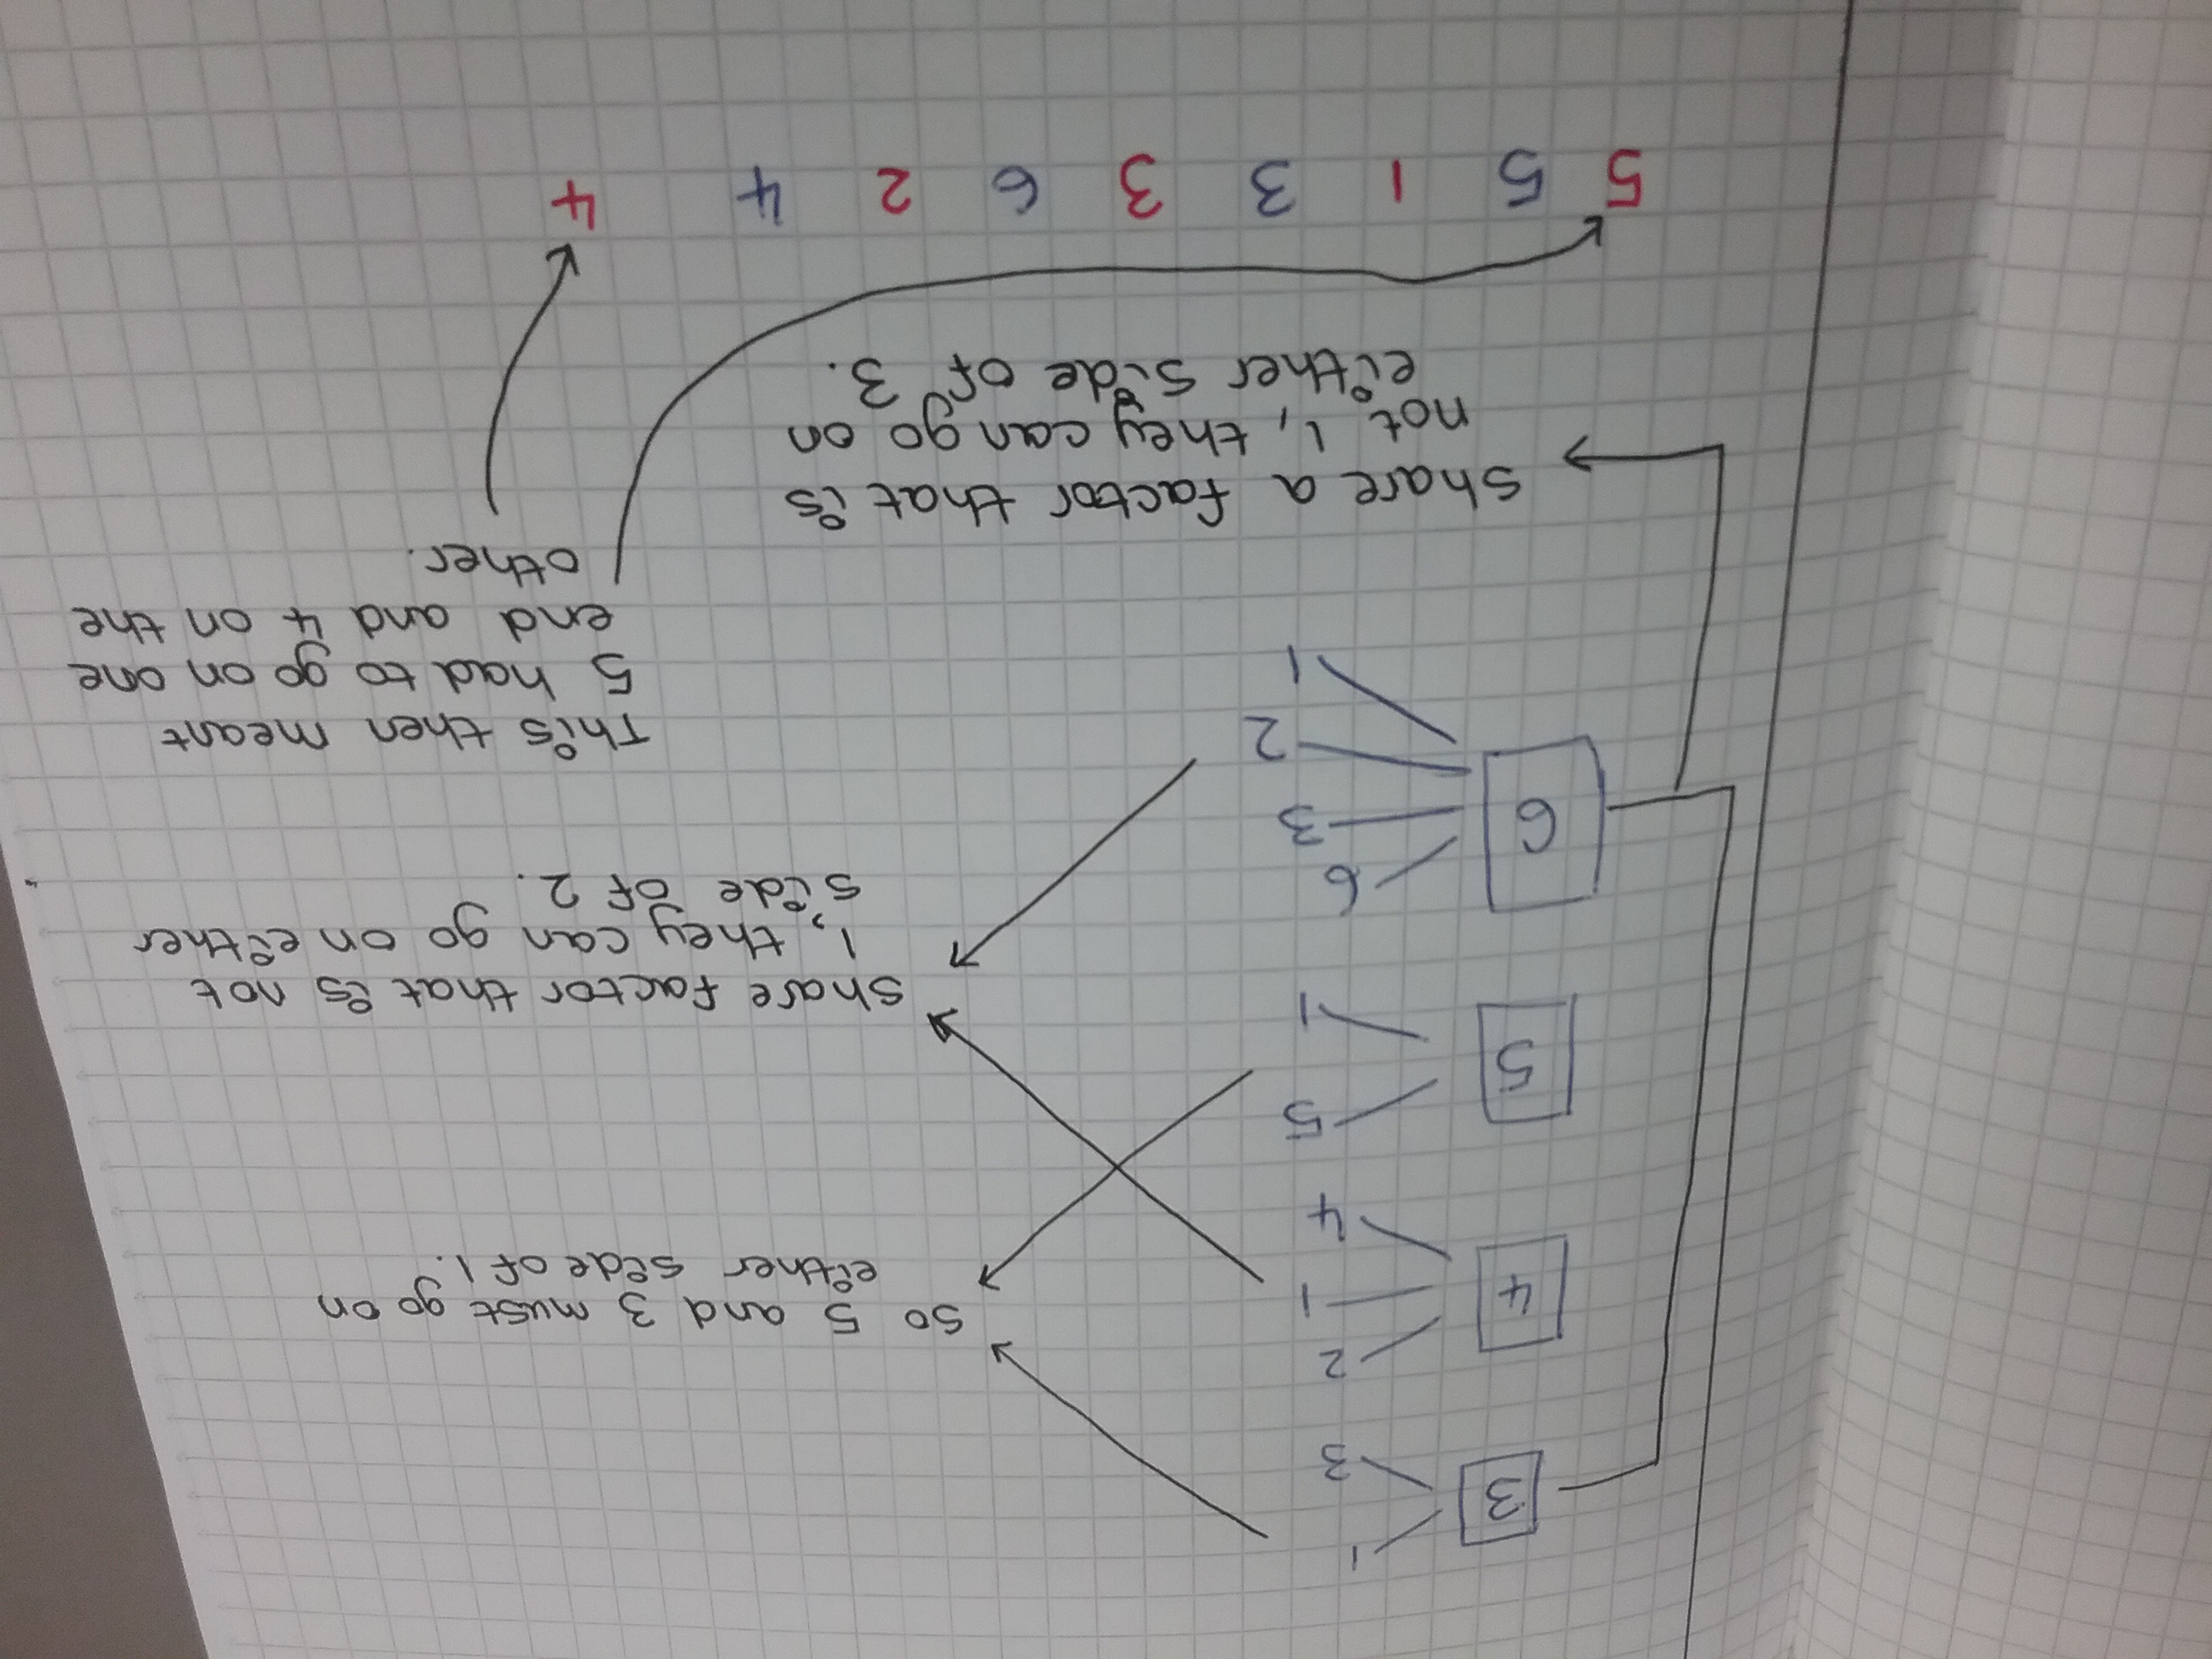 1
3
3
2
4
1
4
So 5 and 3 must go on
either side of 1.
5
5
1
share factor that is not
1, they can go on either
side of 2.
6
6
3
2
1
This then meant
5 had to go on one
end and 4 on the
other.
share a factor that is
not 1, they can go on
either side of 3.
5 5 1 3 3 6 2 4 4